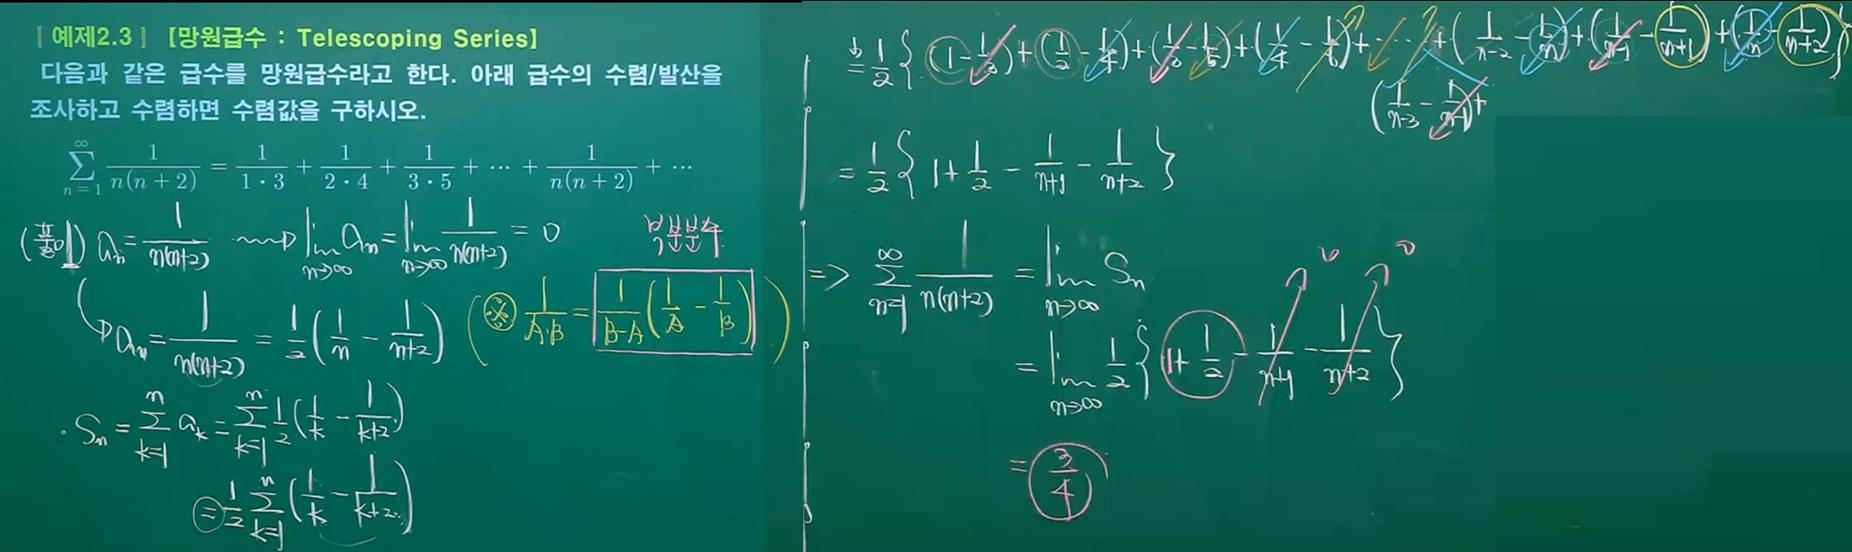 [ 예제2.3 ] 【망원급수 : Telescoping Series】
다음과 같은 급수를 망원급수라고 한다. 아래 급수의 수렴/발산을
조사하고 수렴하면 수렴값을 구하시오.
∑_{n=1}^{∞} 1/(n(n+2)) = 1/(1·3) + 1/(2·4) + 1/(3·5) + ··· + 1/(n(n+2)) + ···
a_n = 1/(n(n+2)) ⟿ lim_{n→∞} a_n = lim_{n→∞} 1/(n(n+2)) = 0
부분분수
a_n = 1/(n(n+2)) = 1/2 (1/n − 1/(n+2)) (※ 1/(A·B) = 1/(B−A) (1/A − 1/B))
· S_n = ∑_{k=1}^{n} a_k = ∑_{k=1}^{n} 1/2 (1/k − 1/(k+2))
= 1/2 ∑_{k=1}^{n} (1/k − 1/(k+2))
= 1/2 { (1 − 1/3) + (1/2 − 1/4) + (1/3 − 1/5) + (1/4 − 1/6) + ··· + (1/(n−2) − 1/n) + (1/(n−1) − 1/(n+1)) + (1/n − 1/(n+2)) }
(1/(n−3) − 1/(n−1)) +
= 1/2 { 1 + 1/2 − 1/(n+1) − 1/(n+2) }
=> ∑_{n=1}^{∞} 1/(n(n+2)) = lim_{n→∞} S_n
0 0
= lim_{n→∞} 1/2 { 1 + 1/2 − 1/(n+1) − 1/(n+2) }
= 3/4